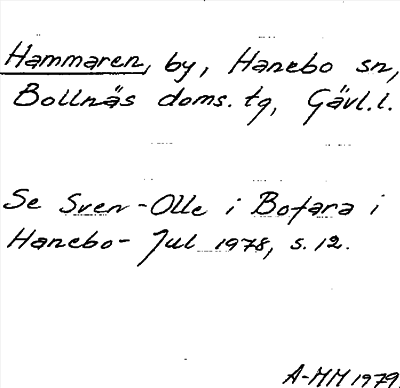 Hammaren, by, Hanebo sn,
Bollnäs doms. tg, Gävl.l.
Se Sven-Olle i Bofara i
Hanebo- Jul 1978, s. 12.
A-MM 1979.